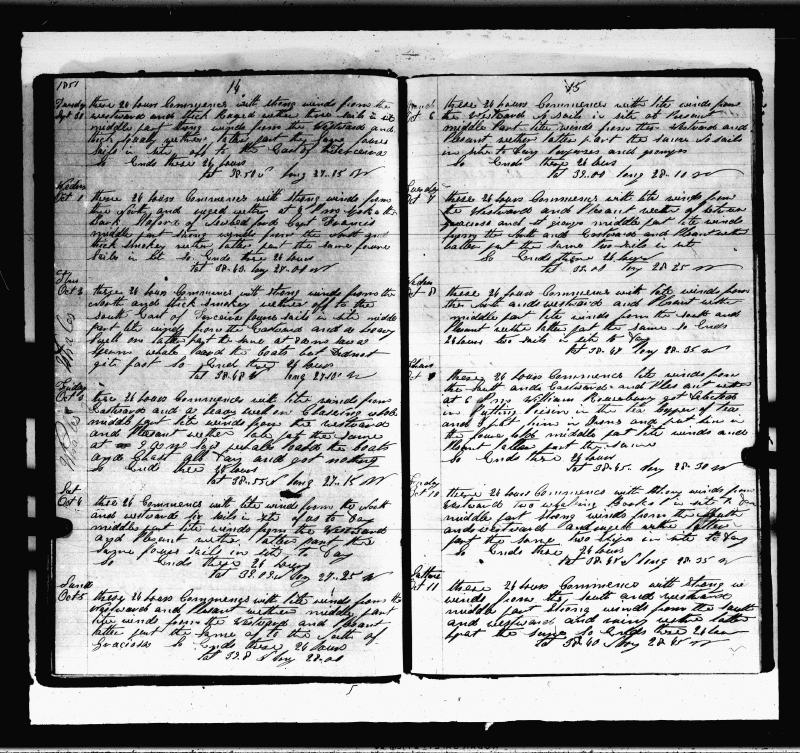 1851
14
Tuesday these 24 hours Commences with strong winds from the
Sept 30 westward and thick Raged wether three sails in sit
middle part strong winds from the westward and
thick Smoky wether latter part the same foure
Sails in site of to the East of
So Ends these 24 hours
Lat 38.50 N long 27.15 W
Wedns these 24 hours Commences with strong winds from
Oct 1 the South and ruged wether at 3 Pm
bark of Bedford Capt Francis
middle part strong winds from the South and
thick smokey wether latter part the same foure
Sails in sit So Ends these 24 hours
Lat 38.40 long 27.08 W
Thurs
Oct 2 these 24 hours Commences with strong winds from the
North and thick smokey wether off to the
South East of Terceira foure sails in site middle
part lite winds from the Eastward and a heavy
swell on latter part the same at
Sperm whale the boats but did not
git fast So Ends these 24 hours
Lat 38.48 N long 27.10 W
Whales
Friday these 24 hours Commences with lite winds from
Oct 3 Eastward and a heavy swell on Chasering whales
middle part lite winds from the westward
and Pleasant wether late part the same
at Am saw whales the boats
and Chast all Day and got nothing
So Ends these 24 hours
Lat 38.55 N long 27.15 W
Sat
Oct 4 these 24 hours Commences with lite winds from the South
and westward sails in site of us to Day
middle part lite winds from the Westward
and Pleasant wether latter part the
Same foure sails in site to Day
So Ends these 24 hours
long 27.25 W
Sund
Oct 5 these 24 hours Commences with lite winds from the
Westward and Plesant wether middle part
lite winds from the Westward and Plesant
latter part the same of to the South of
Graciosa So Ends these 24 hours
Lat 39.8 N long 28.00
15
these 24 hours Commences with lite winds from
Oct 6 the Westward sails in site at Presant
middle Part lite winds from the Westward and
Plesant wether latter part the same sails
in site to Day and
So Ends these 24 hours
Lat 39.00 long 28.10 W
Tuesday
Oct 7 these 24 hours Commences with lite winds from
the Westward and Plesant wether of between
graciosa and St gorge middle part lite winds
from the South and Eastward and Plesant wether
latter part the same two sails in sit
So Ends these 24 hours
Lat 39.00 long 28.25 W
Wedns
Oct 8 these 24 hours Commences with lite winds from
the South and westward and Plesant wether
middle part lite winds from the South and
Plesant wether latter part the same So Ends
24 hours two sails in site to Day
Lat 38.47 long 28.35 W
Thurs
Oct 9 these 24 hours Commences with lite winds from
the South and Eastward and Plesant wether
at 6 Pm William got
in Putting Poisin in the tea Copper of tea
and I put him in Irons and put him in
the middle part lite winds and
Plesant latter part the same
So Ends these 24 hours
Lat 38.45 long 28.30 W
Friday
Oct 10 these 24 hours Commences with strong winds from
Eastward two whaling in site to Day
middle part strong winds from the South
and Eastward and ruged wether latter
part the same two ships in site to Day
So Ends these 24 hours
Lat 38.45 N long 28.35 W
Oct 11 these 24 hours Commences with strong
winds from the South and westward
middle part strong winds from the South
and westward and rainy wether latter
part the same So Ends these 24 hours
Lat 38.40 N long 28.45 W